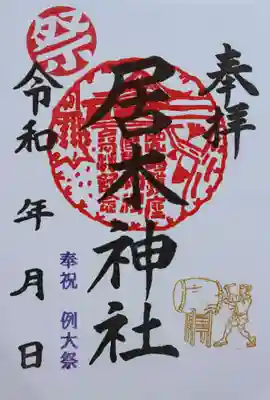 奉拝
居木神社
令和 年 月 日
奉祝 例大祭
祭